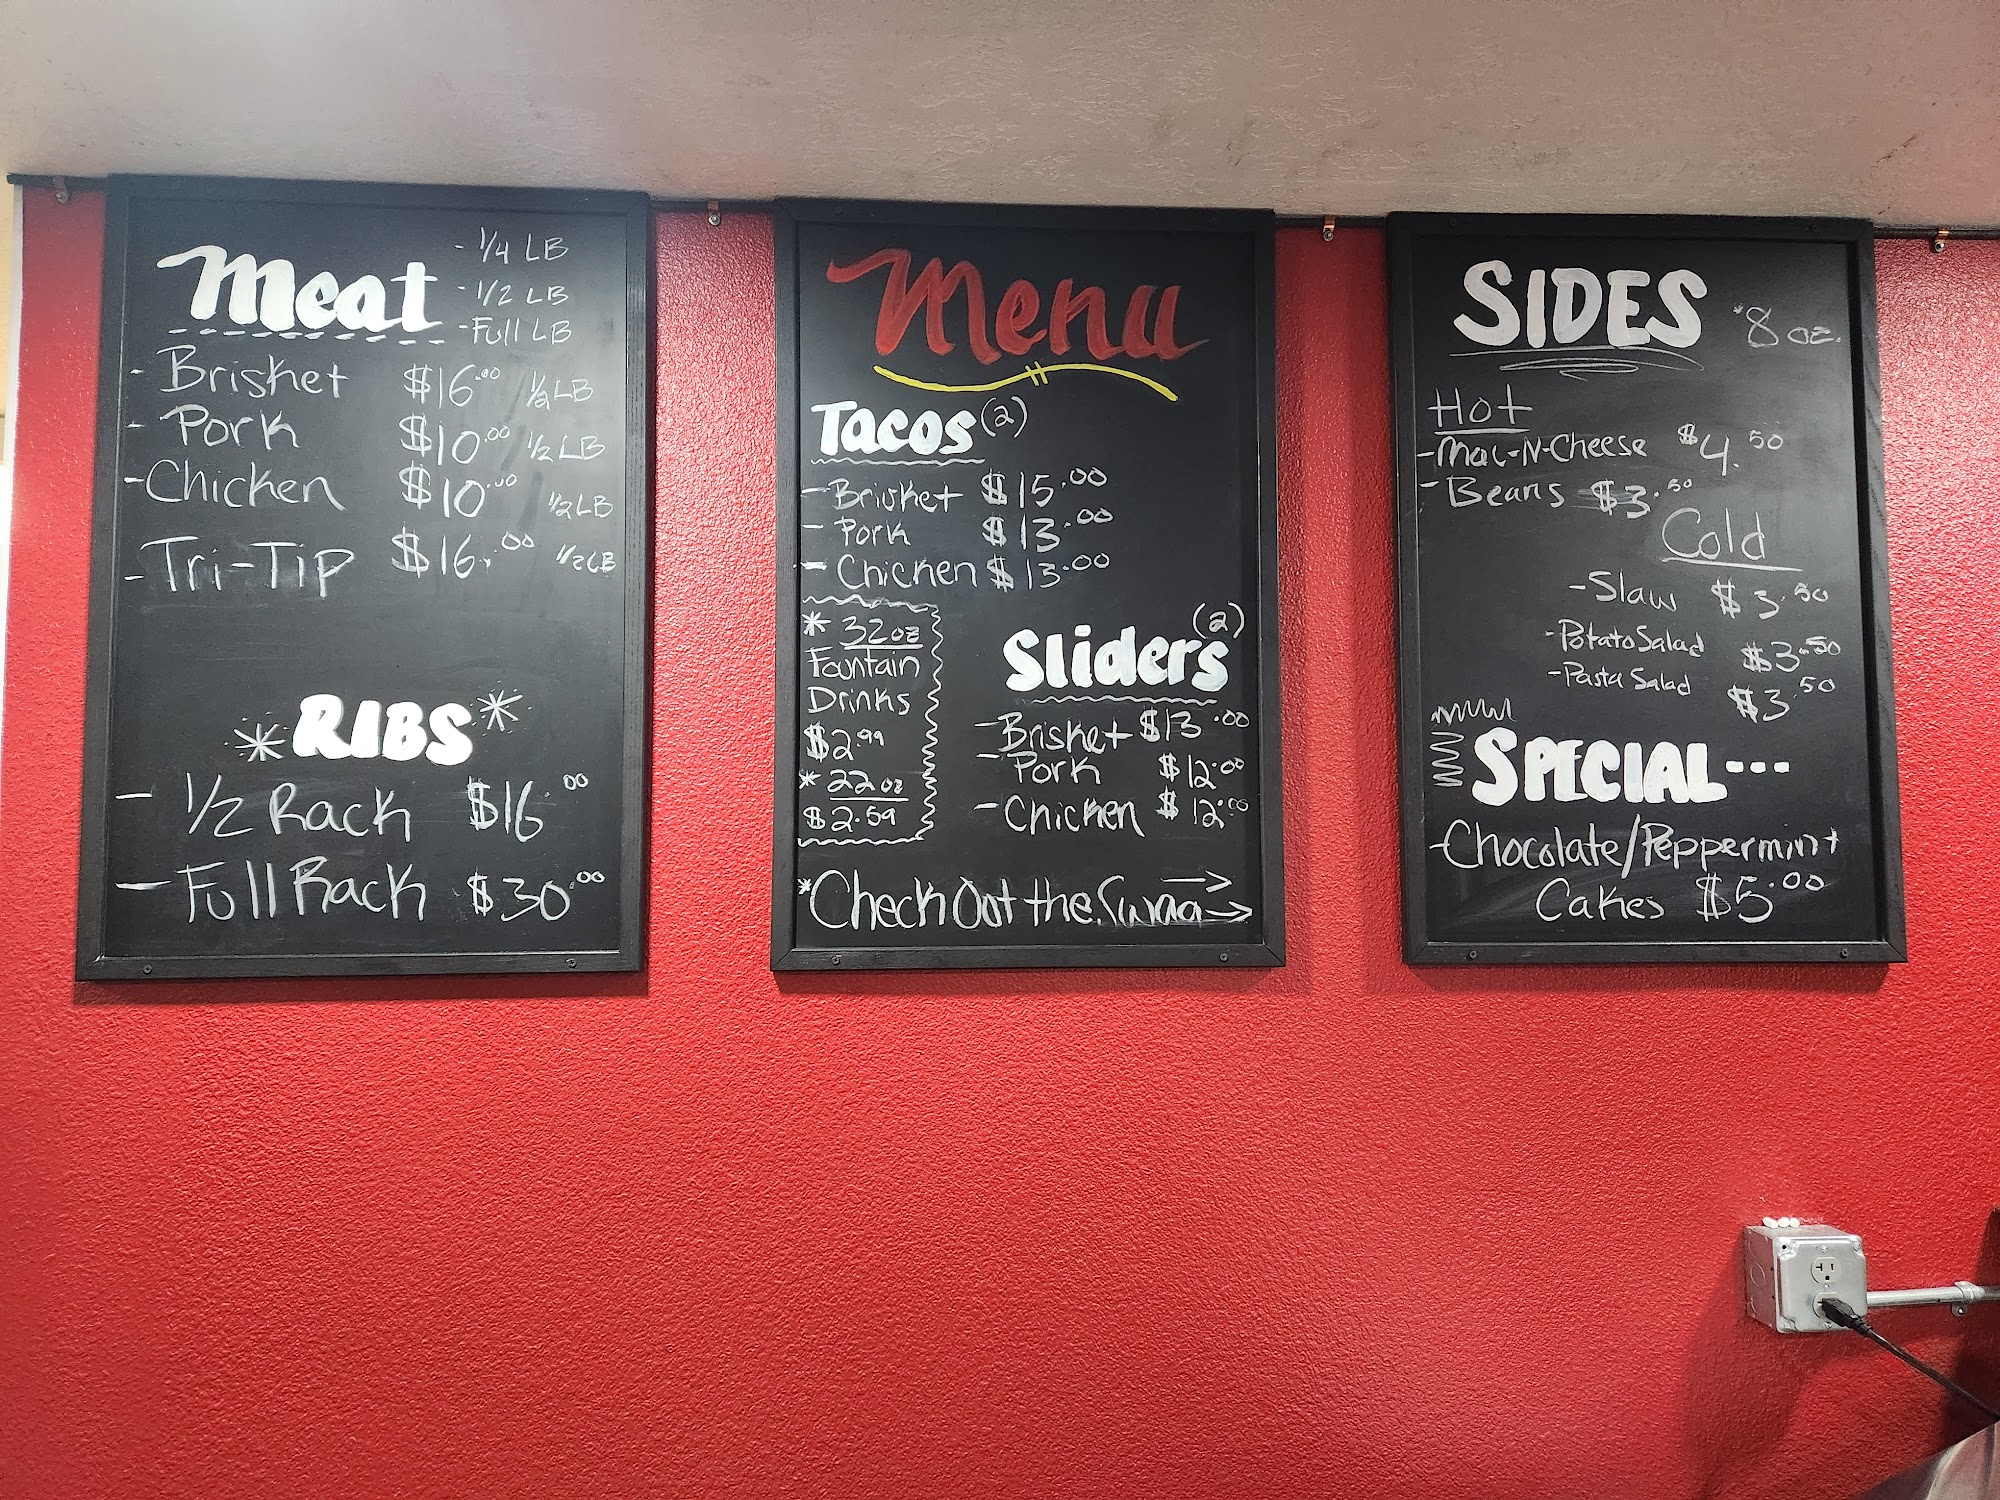 Meat
- 1/4 LB
- 1/2 LB
- Full LB
- Brisket $16.00 1/2 LB
- Pork $10.00 1/2 LB
- Chicken $10.00 1/2 LB
- Tri-Tip $16.00 1/2 LB
* RIBS *
- 1/2 Rack $16.00
- Full Rack $30.00
Menu
Tacos (2)
- Brisket $15.00
- Pork $13.00
- Chicken $13.00
* 32oz
Fountain
Drinks
$2.99
* 22oz
$2.59
Sliders (2)
- Brisket $13.00
- Pork $12.00
- Chicken $12.00
*Check Out the Swag
SIDES *8oz.
Hot
- Mac-N-Cheese $4.50
- Beans $3.50
Cold
- Slaw $3.50
- Potato Salad $3.50
- Pasta Salad $3.50
SPECIAL...
- Chocolate/Peppermint
Cakes $5.00